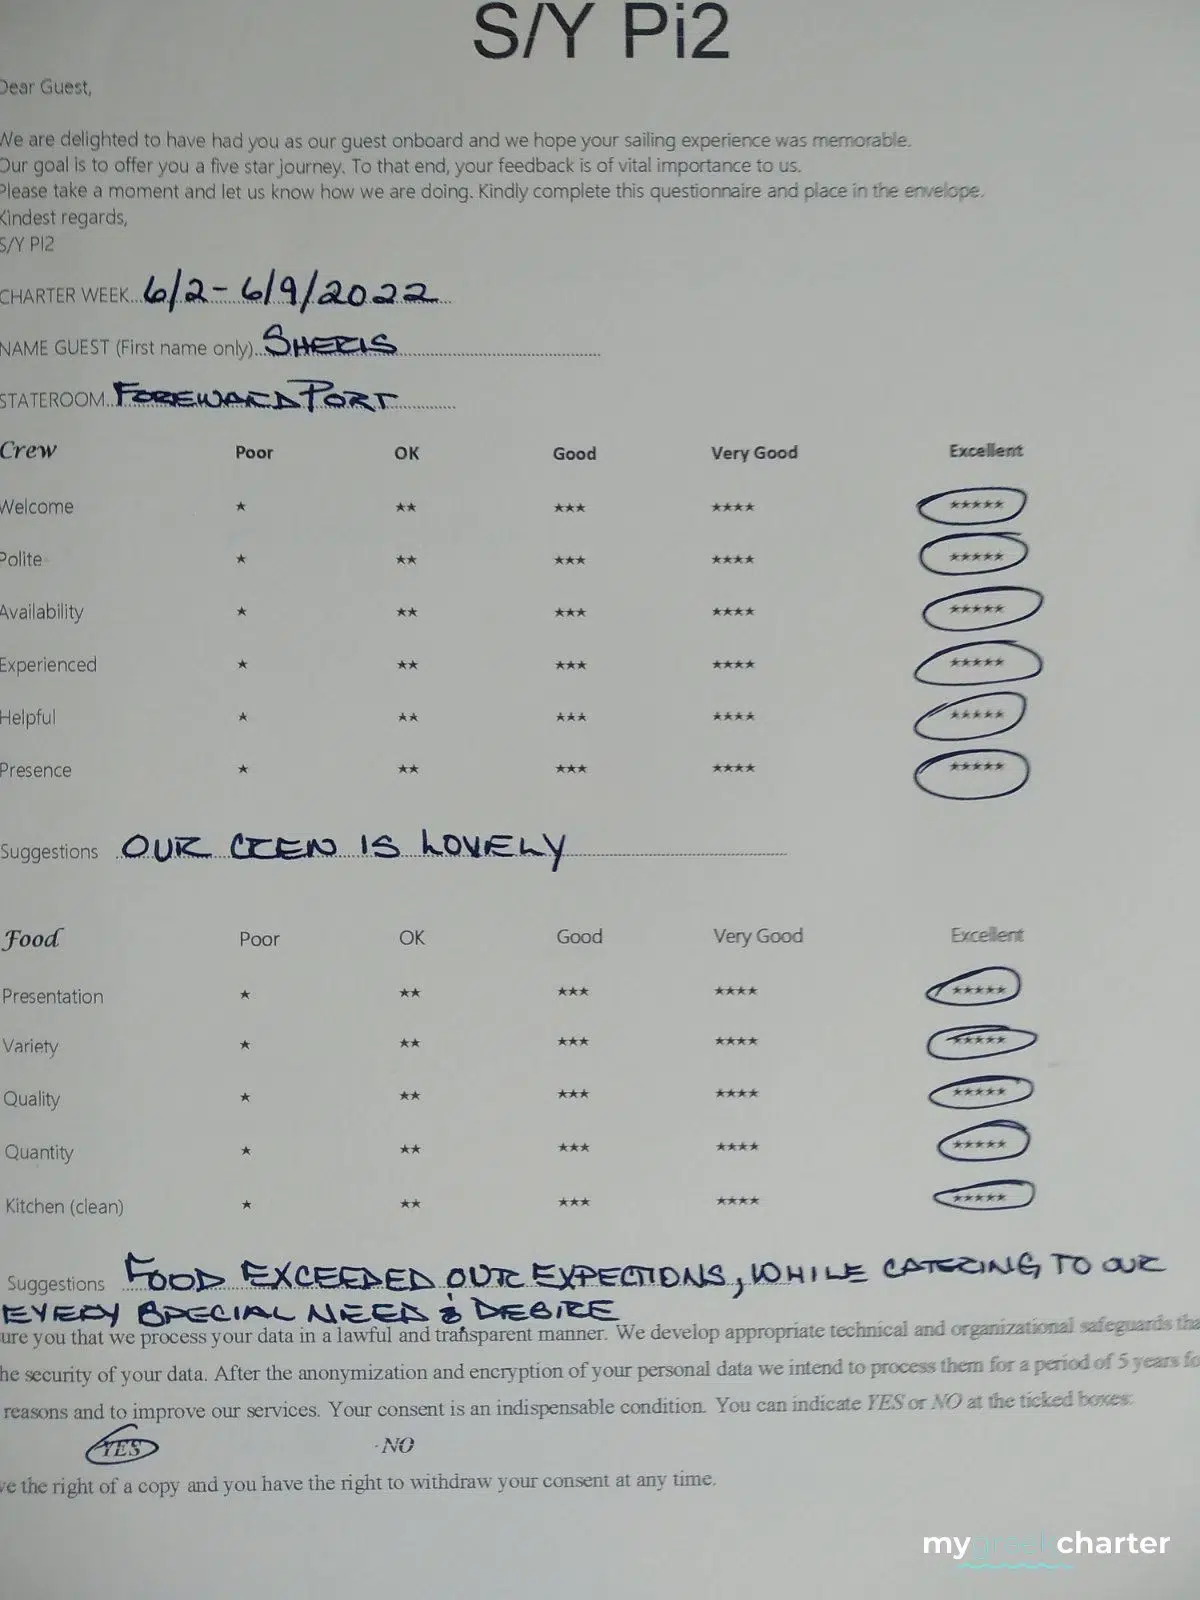 S/Y Pi2
Dear Guest,
We are delighted to have had you as our guest onboard and we hope your sailing experience was memorable.
Our goal is to offer you a five star journey. To that end, your feedback is of vital importance to us.
Please take a moment and let us know how we are doing. Kindly complete this questionnaire and place in the envelope.
Kindest regards,
S/Y PI2
CHARTER WEEK...6/2-6/9/2022
NAME GUEST (First name only)..SHERIS
STATEROOM..FOREWARD PORT
Crew Poor OK Good Very Good Excellent
Welcome ★ ★★ ★★★ ★★★★ ★★★★★
Polite ★ ★★ ★★★ ★★★★ ★★★★★
Availability ★ ★★ ★★★ ★★★★ ★★★★★
Experienced ★ ★★ ★★★ ★★★★ ★★★★★
Helpful ★ ★★ ★★★ ★★★★ ★★★★★
Presence ★ ★★ ★★★ ★★★★ ★★★★★
Suggestions OUR CREW IS LOVELY
Food Poor OK Good Very Good Excellent
Presentation ★ ★★ ★★★ ★★★★ ★★★★★
Variety ★ ★★ ★★★ ★★★★ ★★★★★
Quality ★ ★★ ★★★ ★★★★ ★★★★★
Quantity ★ ★★ ★★★ ★★★★ ★★★★★
Kitchen (clean) ★ ★★ ★★★ ★★★★ ★★★★★
Suggestions FOOD EXCEEDED OUR EXPECTIONS, WHILE CATERING TO OUR
EVERY SPECIAL NEED & DESIRE
ure you that we process your data in a lawful and transparent manner. We develop appropriate technical and organizational safeguards tha
he security of your data. After the anonymization and encryption of your personal data we intend to process them for a period of 5 years fo
reasons and to improve our services. Your consent is an indispensable condition. You can indicate YES or NO at the ticked boxes:
YES ·NO
ve the right of a copy and you have the right to withdraw your consent at any time.
mygreekcharter